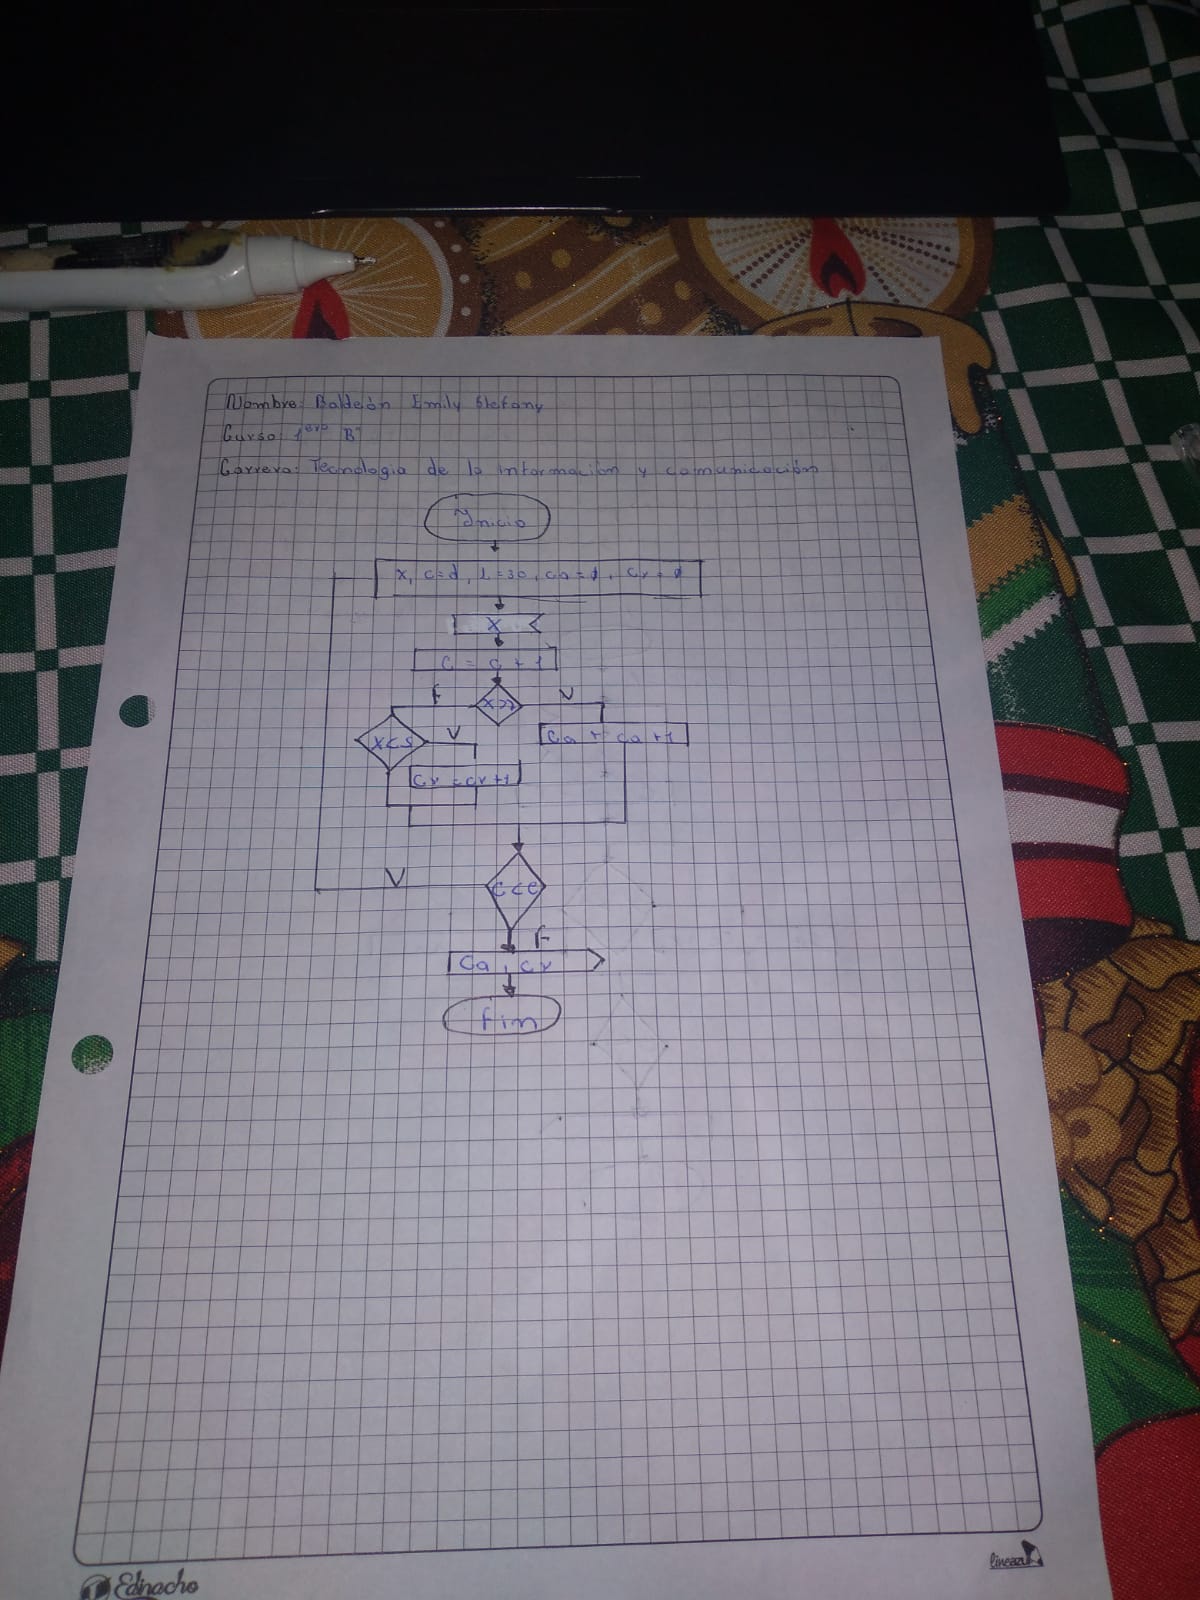 Nombre: Baldeón Emily Stefany
Curso: 1ero "B"
Carrera: Tecnologia de la información y comunicación
Inicio
X, C=0, L=30, Ca=0, Cr=0
X
C = C + 1
F X>7 V
X<5 V Ca = Ca +1
Cr = Cr+1
V C<L
F
Ca, Cr
fin
Edinacho
lineazul